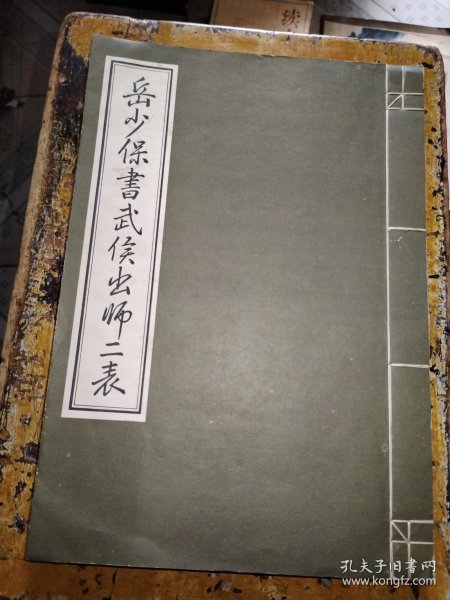 岳少保書武侯出师二表
续
孔夫子旧书网
www.kongfz.com